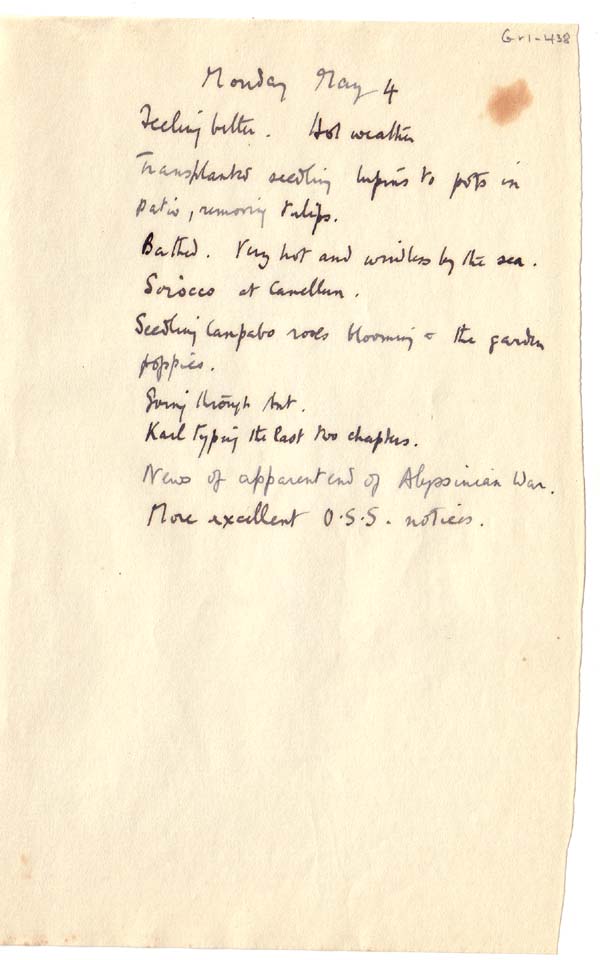 Gr1-438
Monday May 4
Feeling better. Hot weather
Transplanted seedling lupins to pots in
patio, removing tulips.
Bathed. Very hot and windless by the sea.
Sirocco at Canellun.
Seedling roses blooming & the garden
poppies.
Going through Ant.
Karl typing the last two chapters.
News of apparent end of Abyssinian War.
More excellent O.S.S. notices.